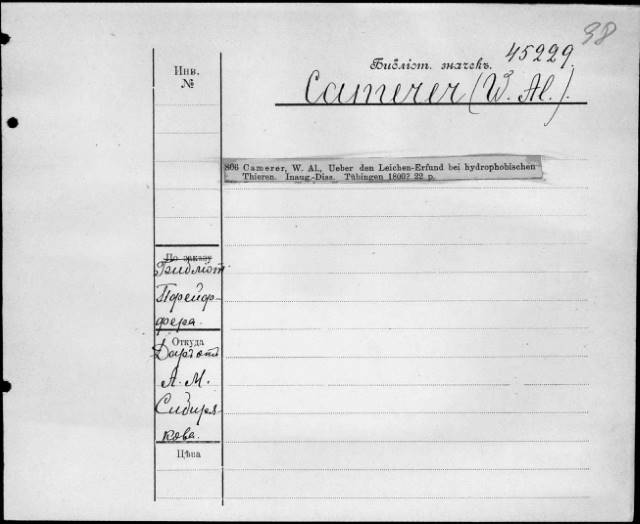 38
45229.
Библіот. значекъ.
Camerer (W. Al.).
Инв.
№
806 Camerer, W. Al., Ueber den Leichen-Erfund bei hydrophobischen
Thieren. Inaug.-Diss. Tübingen 1800? 22 p.
По заказу
Библіот
Пфейф-
фера.
Откуда
Даръ отъ
А. М.
Сибиря-
кова.
Цѣна